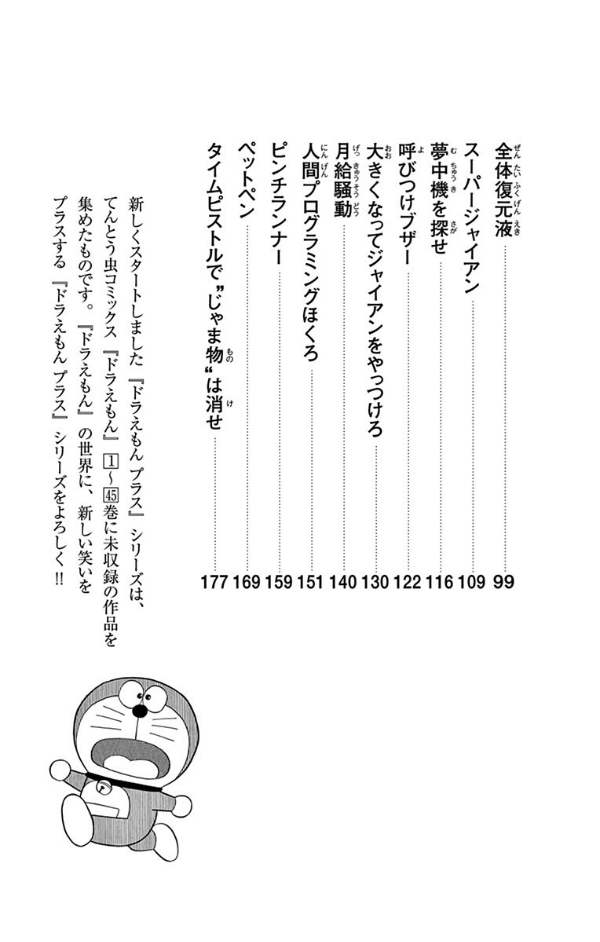 全体復元液 99
スーパージャイアン 109
夢中機を探せ 116
呼びつけブザー 122
大きくなってジャイアンをやっつけろ 130
月給騒動 140
人間プログラミングほくろ 151
ピンチランナー 159
ペットペン 169
タイムピストルで〝じゃま物〟は消せ 177
新しくスタートしました『ドラえもん プラス』シリーズは、
てんとう虫コミックス『ドラえもん』1〜45巻に未収録の作品を
集めたものです。『ドラえもん』の世界に、新しい笑いを
プラスする『ドラえもん プラス』シリーズをよろしく!!